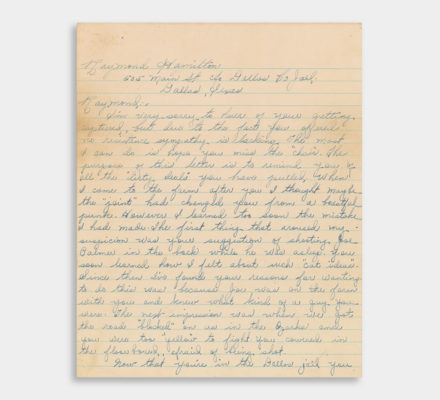 Raymond Hamilton
505 Main St c/o Dallas Co Jail
Dallas, Texas
Raymond:-
I'm very sorry to hear of your getting
captured, but due to the fact you offered
no resistance sympathy is lacking. The most
I can do is hope you miss the chair. The
purpose of this letter is to remind you of
all the "dirty deals" you have pulled. When
I came to the farm after you I thought maybe
the "joint" had changed you from a boastful
punk. However I learned too soon the mistake
I had made. The first thing that aroused my
suspicion was your suggestion of shooting Joe
Palmer in the back while he was asleep. You
soon learned how I felt about such "cat ideas".
Since then I've found your reasons for wanting
to do this was because Joe was on the farm
with you and knew what kind of a guy you
were. The next impression was when we got
the road blocked on us in the Ozarks and
you were too "yellow" to fight. You cowered in
the floorboard, afraid of being shot.
Now that you're in the Dallas jail you